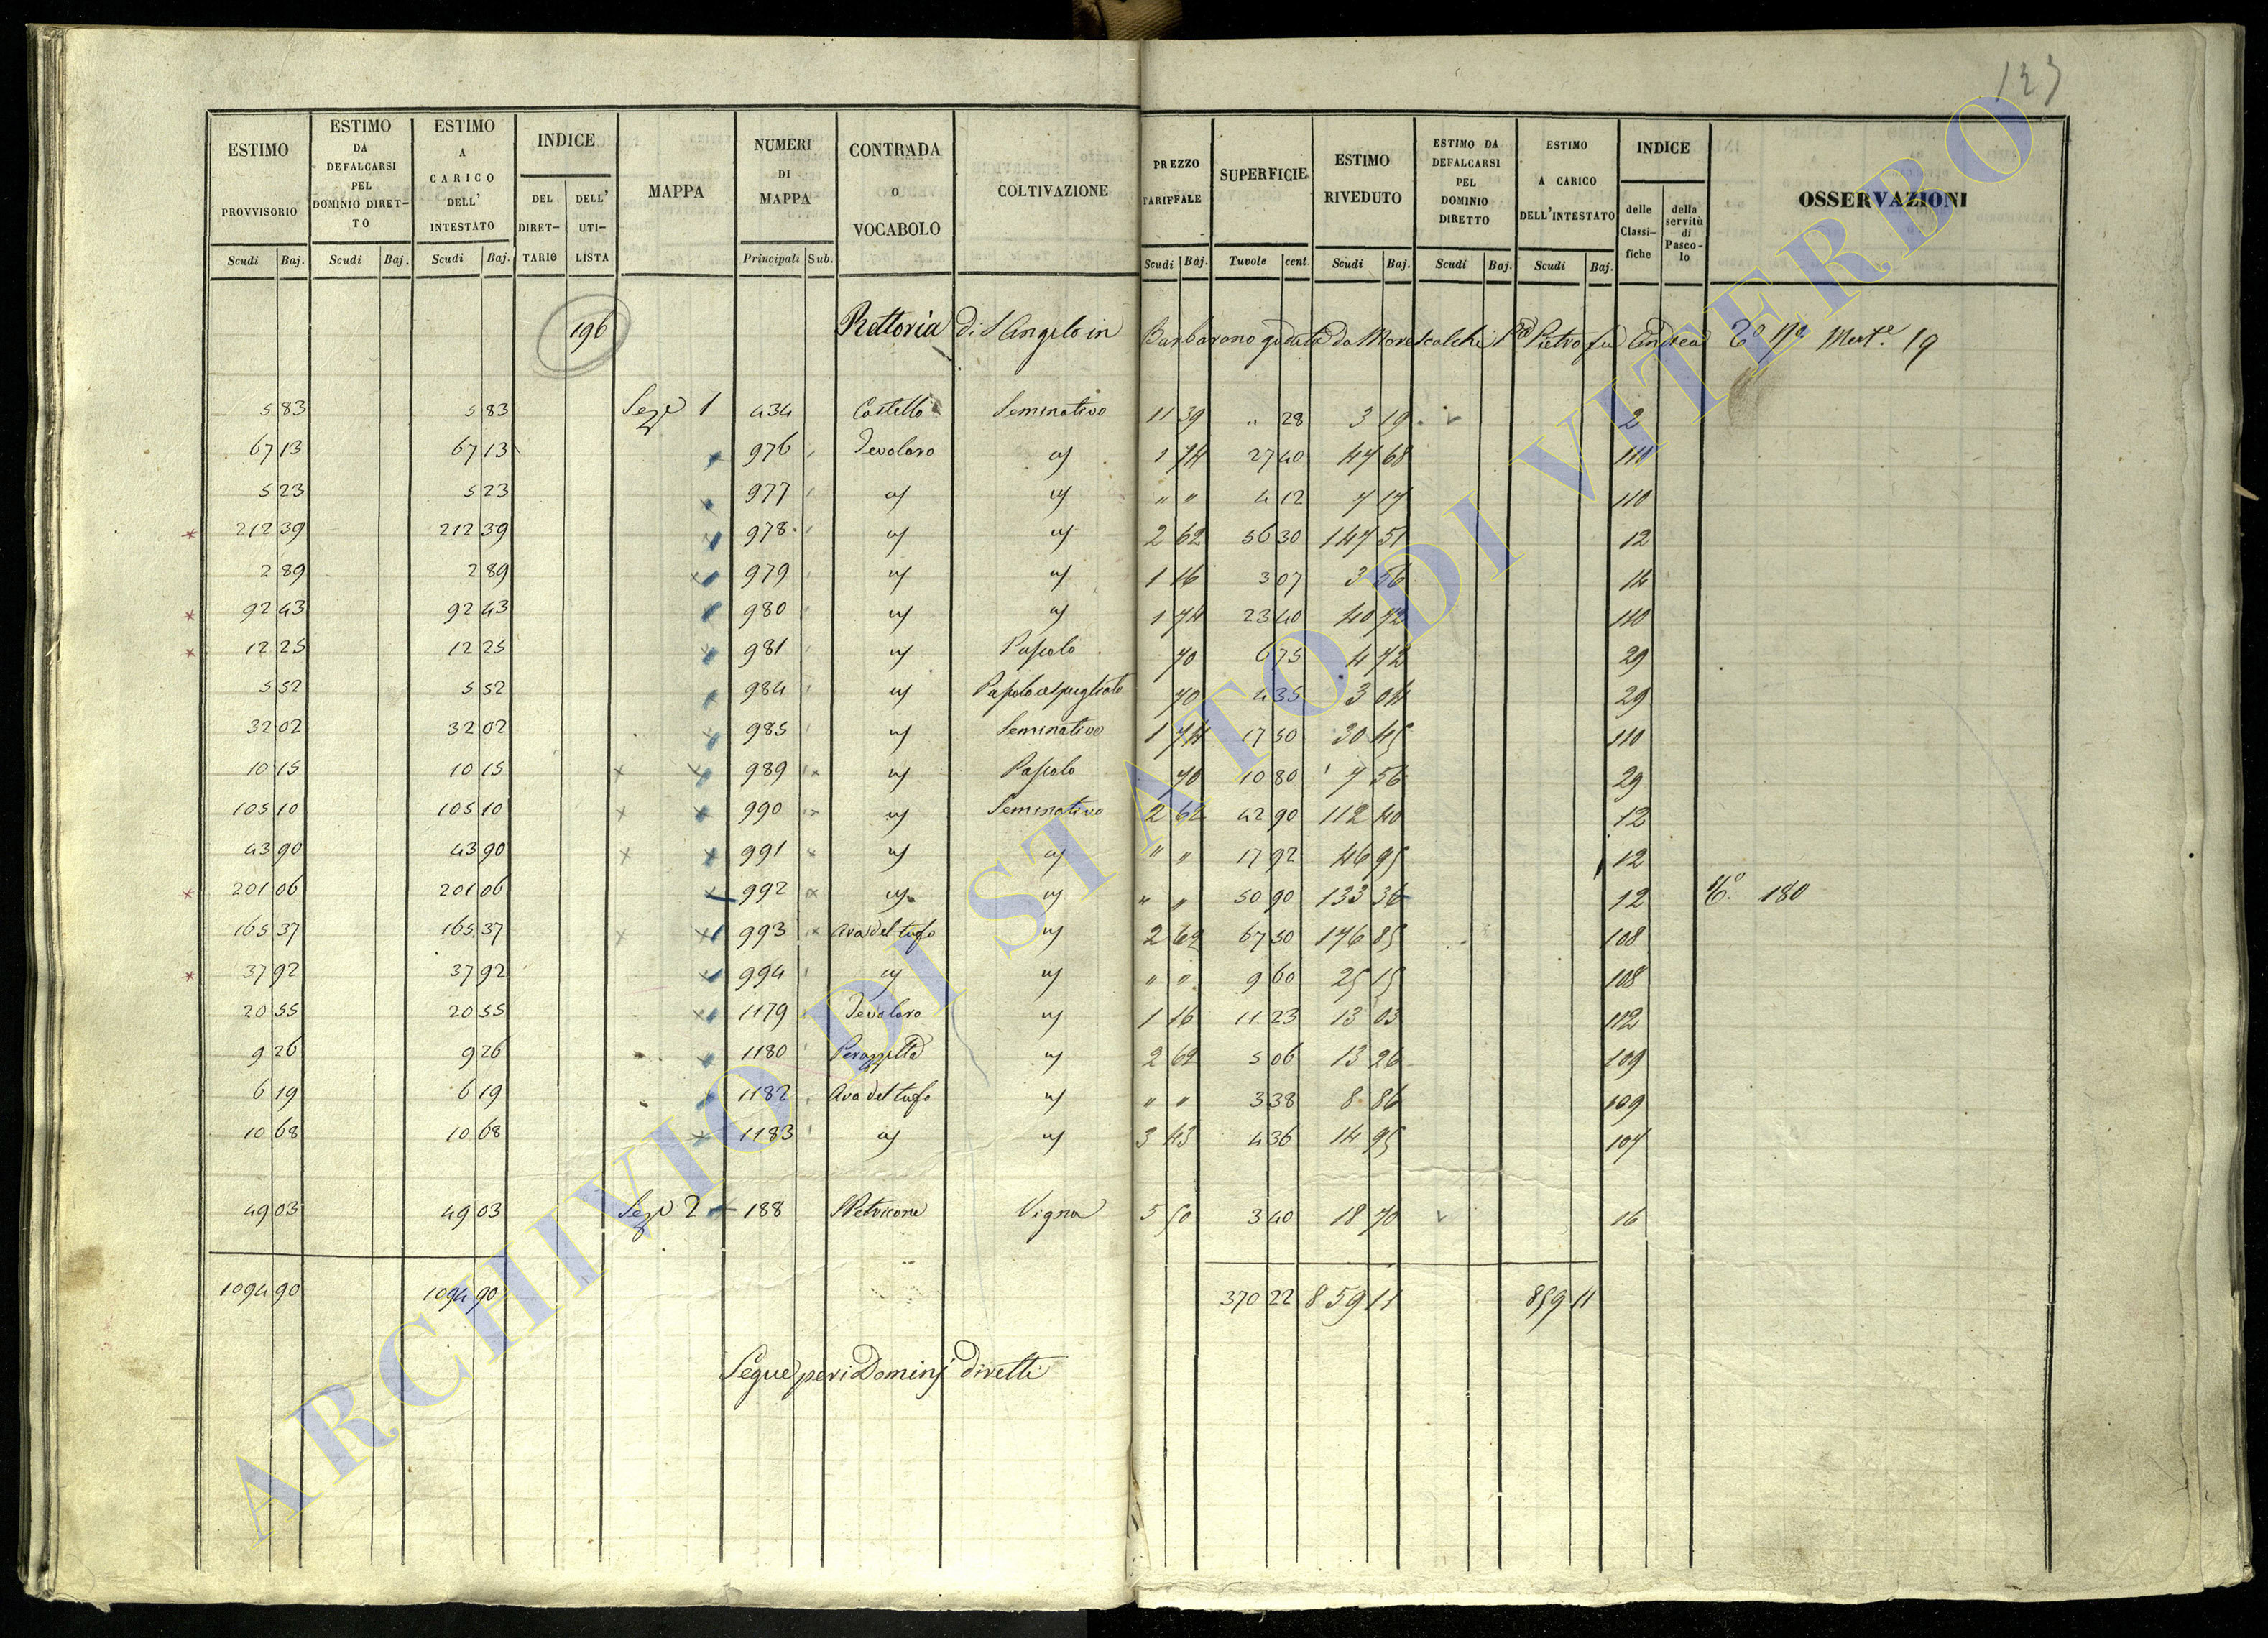 123
ESTIMO PROVVISORIO Scudi Baj. ESTIMO DA DEFALCARSI PEL DOMINIO DIRETTO Scudi Baj. ESTIMO A CARICO DELL' INTESTATO Scudi Baj. INDICE DEL DIRETTARIO DELL' UTILISTA MAPPA NUMERI DI MAPPA Principali Sub. CONTRADA O VOCABOLO COLTIVAZIONE PREZZO TARIFFALE Scudi Baj. SUPERFICIE Tavole cent. ESTIMO RIVEDUTO Scudi Baj. ESTIMO DA DEFALCARSI PEL DOMINIO DIRETTO Scudi Baj. ESTIMO A CARICO DELL'INTESTATO Scudi Baj. INDICE delle Classifiche della servitù di Pascolo OSSERVAZIONI
196 Rettoria di S Angelo in Barbarano goduta da Morescalchi Pietro fu Andrea 19
5 83 5 83 Sez.e 1 434 Castello Seminativo 11 39 " 28 3 19 2
67 13 67 13 " 976 Tevolaro " 1 74 27 40 47 68 110
5 23 5 23 " 977 " " " " 4 12 7 17 110
212 39 212 39 " 978 " " 2 62 56 30 147 51 12
2 89 2 89 " 979 " " 1 16 3 07 3 56 14
92 43 92 43 " 980 " " 1 74 23 40 40 72 110
12 25 12 25 " 981 " Pascolo 70 6 75 4 72 29
5 52 5 52 " 984 " Pascolo cespugliato 70 4 35 3 04 29
32 02 32 02 " 985 " Seminativo 1 74 17 50 30 45 110
10 15 10 15 " 989 " Pascolo 70 10 80 7 56 29
105 10 105 10 " 990 " Seminativo 2 62 42 90 112 40 12
43 90 43 90 " 991 " " " " 17 92 46 95 12
201 06 201 06 " 992 " " " " 50 90 133 36 12 180
165 37 165 37 " 993 Ara del tufo " 2 62 67 50 176 85 108
37 92 37 92 " 994 " " " " 9 60 25 15 108
20 55 20 55 " 1179 Tevolaro " 1 16 11 23 13 03 112
9 26 9 26 " 1180 Perazzetta " 2 62 5 06 13 26 109
6 19 6 19 " 1182 Ara del tufo " " " 3 38 8 86 109
10 68 10 68 " 1183 " " 3 43 4 36 14 95 107
49 03 49 03 Sez.e 2 188 Vigna 5 50 3 40 18 70 16
1094 90 1094 90 370 22 859 11 859 11
Segue per i Dominj diretti
ARCHIVIO DI STATO DI VITERBO